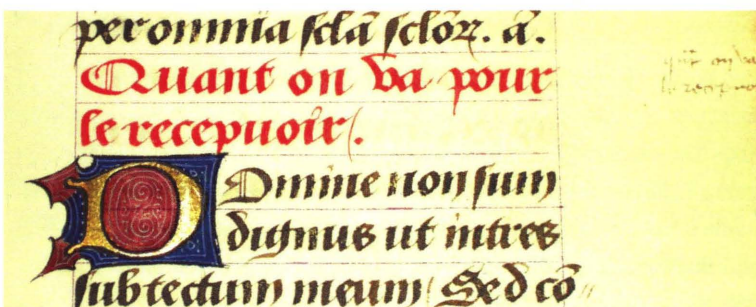 per omnia scła sclōꝝ. a̅.
Quant on va pour
le recepuoir.
Domine non sum
dignus ut intres
sub tectum meum Sed cō